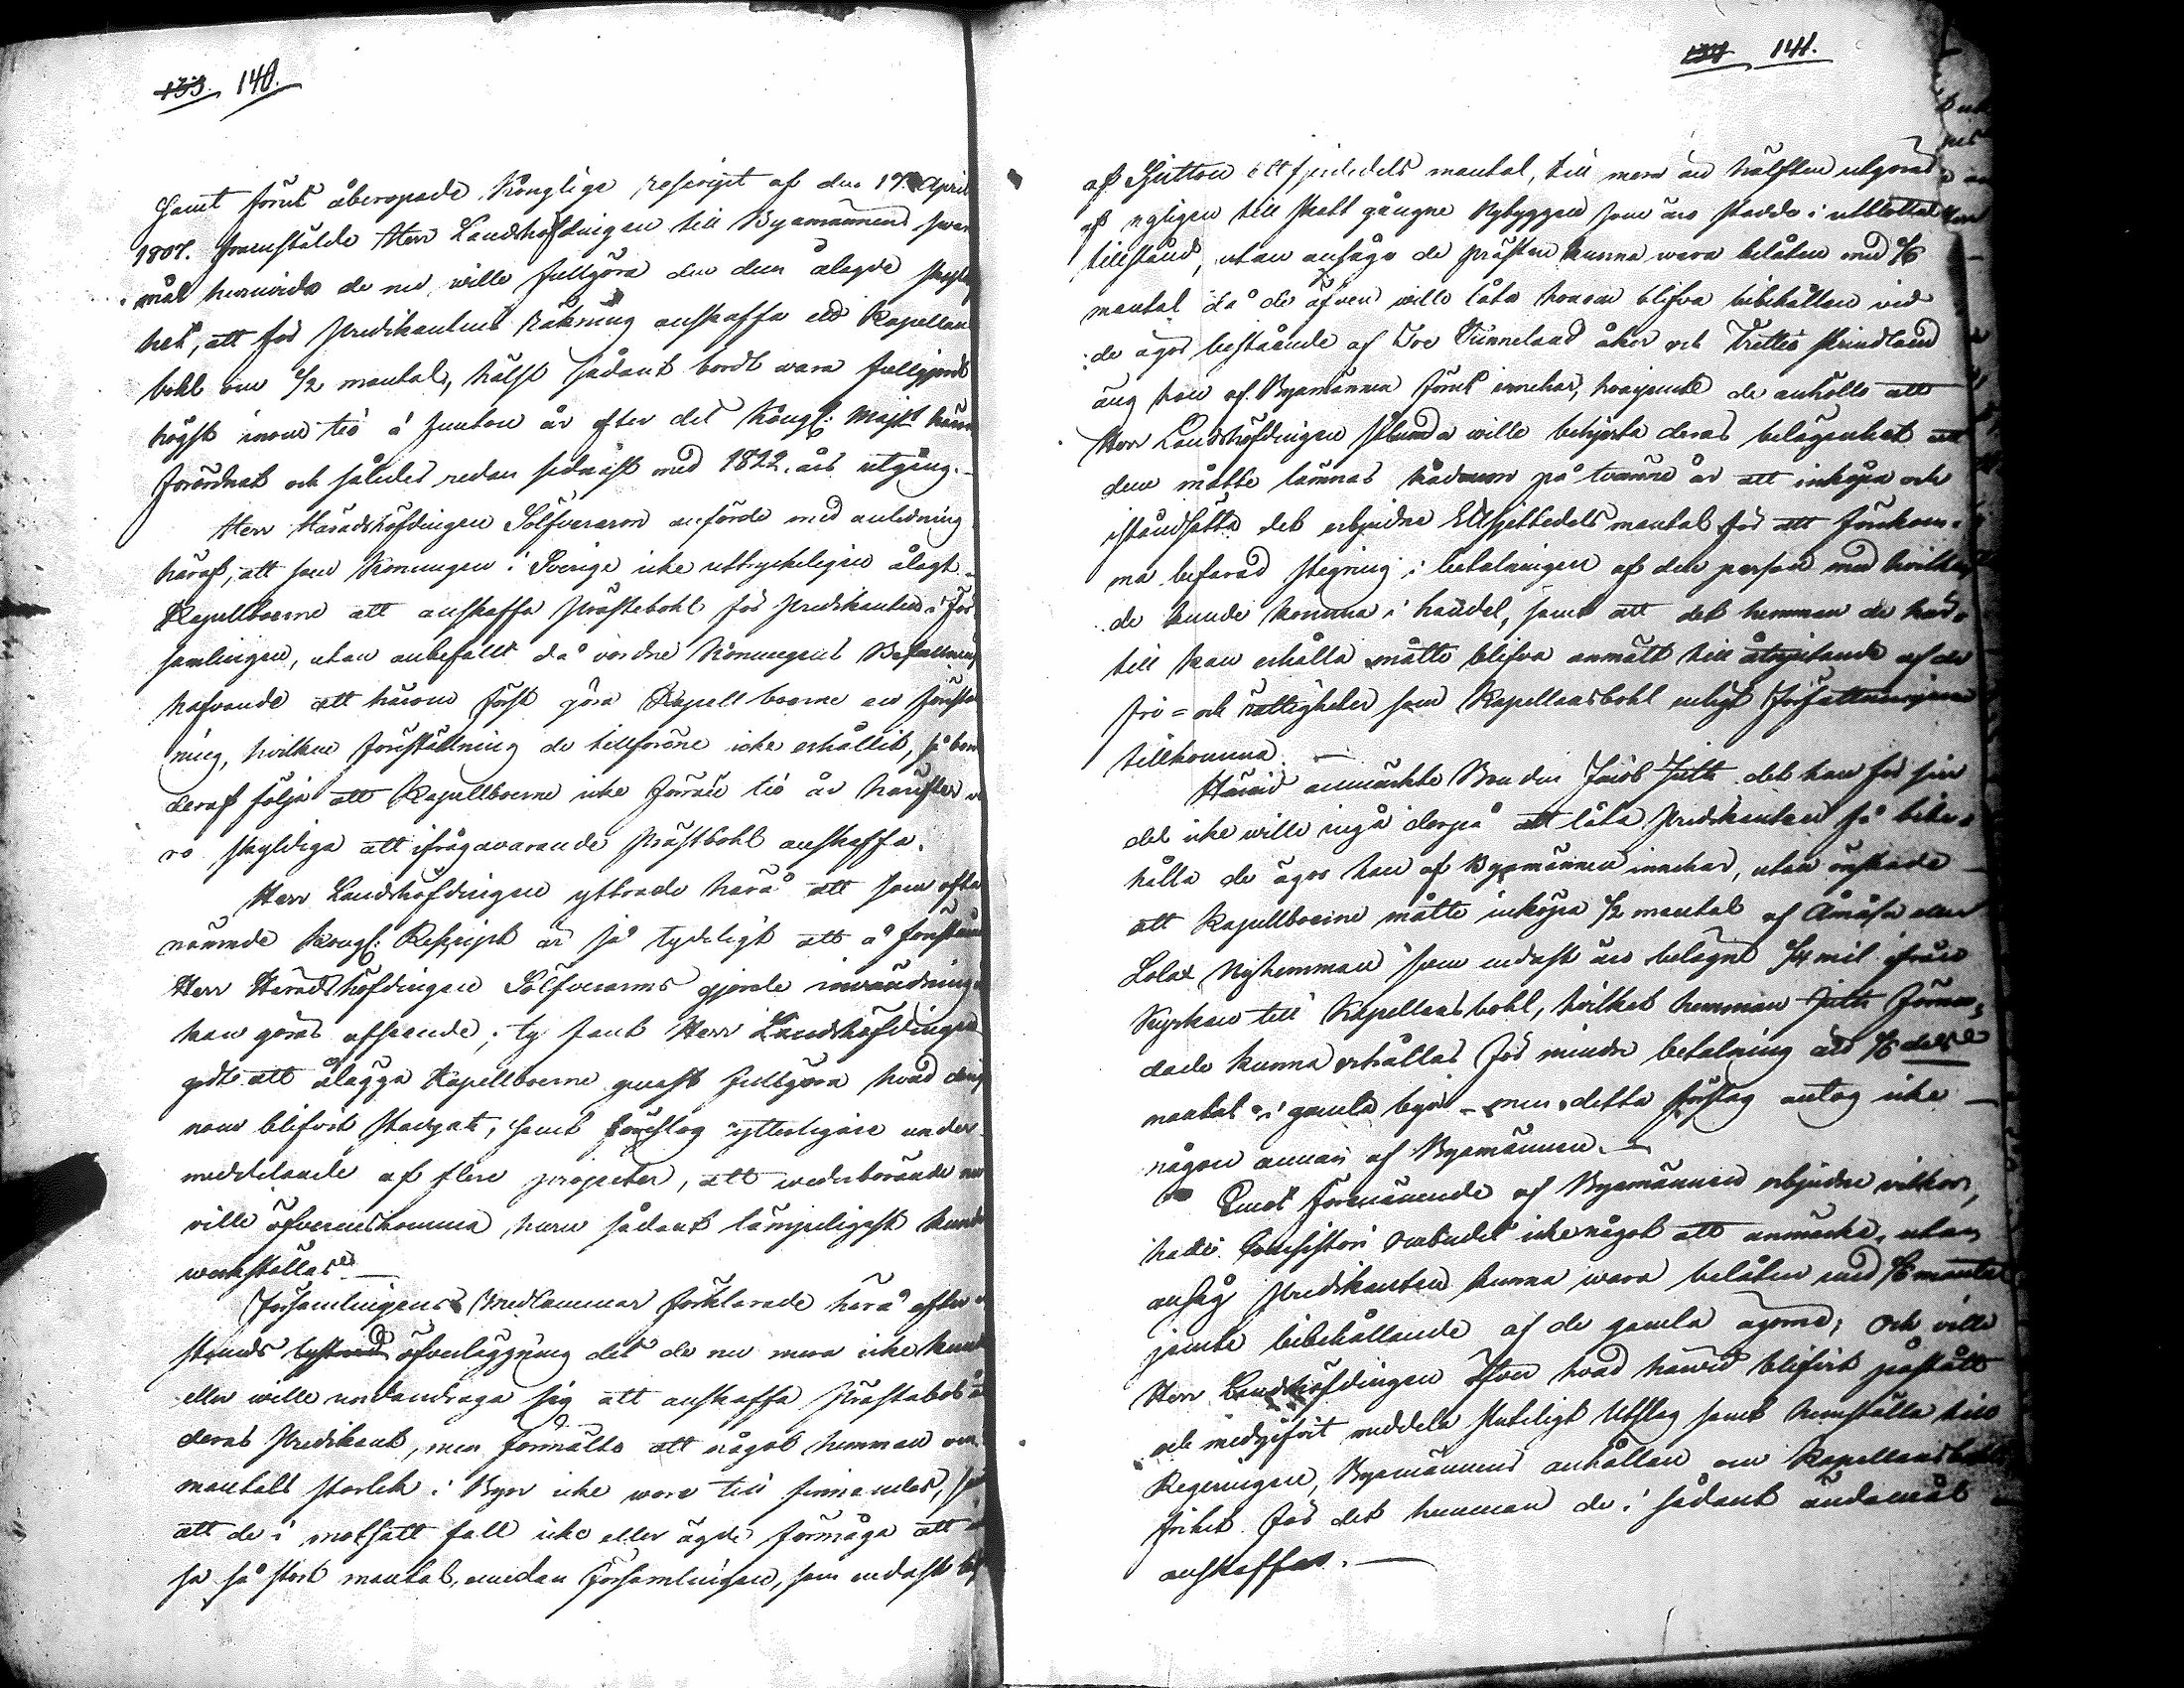 133. 140.
Samt förut åberopade Kongliga rescript af den 17 April
1807. framstälde Herr Landshöfdingen till Byamännens swar
mål huruvida de nu wille fullgöra den dem ålagde skyldig
het, att för Predikantens räkning anskaffa ett Kapellans
bohl om 1/2 mantal, hälst sådant bordt wara fullgjordt
högst inom tio á funton år efter det Kongl: Majst hän
förordnat och således redan sednast med 1822. års utgång.
Herr Häradshöfdingen Sölfverarm anförde med anledning
häraf, att som Konungen i Sverige icke uttryckeligen ålagt
Kapellboerne att anskaffa Prästebohl för Predikanten i För
samlingen, utan anbefallt då vordne Konungens Befallnings
hafvande att härom först göra Kapellboerne en föreställ
ning, hvilken föreställning de tillforene icke erhållit, så bör
deraf följa att Kapellboerne icke förrän tio år härefter
ro skyldiga att ifrågavarande Prästbohl anskaffa.
Herr Landshöfdingen yttrade härå att som ofta
nämnde Kongl: Reskript är så tydeligt att å förstånd
Herr Häradshöfdingen Sölfverarms gjorde invändning
kan göras afseende; ty fant Herr Landshöfdingen
godt att ålägga Kapellboerne genast fullgöra hvad deri
nom blifvit stadgat, samt föreslog ytterligare under
meddelande af flere projecter, att wederbörande nu
ville öfverenskomma, huru sådant lämpeligast kunde
werkställas.
Församlingens Medlemmar förklarade härå efter en
stunds öfverläggning det de nu mera icke kunde
eller wille undandraga sig att anskaffa Prästabohl åt
deras Predikant, men förmälte att något hemman om
mantals storlek i Byn icke wore till finnandes,
att de i motsatt fall icke eller ägde förmåga att
sa så stort mantal, emedan Församlingen, som endast best
134 141.
af Sjutton ett fjerdedels mantal, till mera än hälften utgöres
af nyligen till skatt gångne Nybyggen som äro stadde i utblottat
tillstånd, utan ansågo de Prästen kunna wara belåten med 1/6
mantal då de äfven wille låta honom blifva bibehållen vid
de ägor bestående af Tre Tunneland åker och Trettio skrindland
äng han af Byamännen förut innehar, hvarjemte de anhöllo att
Herr Landshöfdingen sålunda wille behjerta deras belägenhet att
dem måtte lämnas rådrum på tvänne år att inköpa och
iståndsätta det erbjudne Ettsjettedels mantal för att förekom-
ma befarad stegring i betalningen af den person med hvilken
de kunde komma i handel, samt att det hemman de här-
till kan erhålla måtte blifva anmält till åtnjutande af de
fri- och rättigheter som Kapellansbohl enligt Författningarne
tillkomma.
Härvid anmärkte Bonden Jacob Juth det han för sin
del icke wille ingå derpå att låta Predikanten få bibe-
hålla de ägor han af Byamännen innehar, utan önskade
att Kapellboerne måtte inköpa 1/2 mantal af Åmåsa eller
Lolax Nyhemman som endast äro belägne 1/4 mil ifrån
Kyrkan till Kapellansbohl, hvilket hemman Juth förme-
dade kunna erhållas för mindre betalning än 1/6 dels
mantal i gamla byn - men detta förslag antog icke
någon annan af Byamännen.
Emot förenämnde af Byamännen erbjudne vilkor,
hade Consistorii ombudet icke något att anmärka, utan
ansåg Predikanten kunna wara belåten med 1/6 mantal
jemte bibehållande af de gamla ägorne; Och ville
Herr Landshöfdingen öfver hvad härvid blifvit påstått
och medgifvit meddela skriteligt Utslag samt hemställa till
Regeringen, Byamännens anhållan om Kapellansbohls
frihet för det hemman de i sådant ändamål
anskaffar.